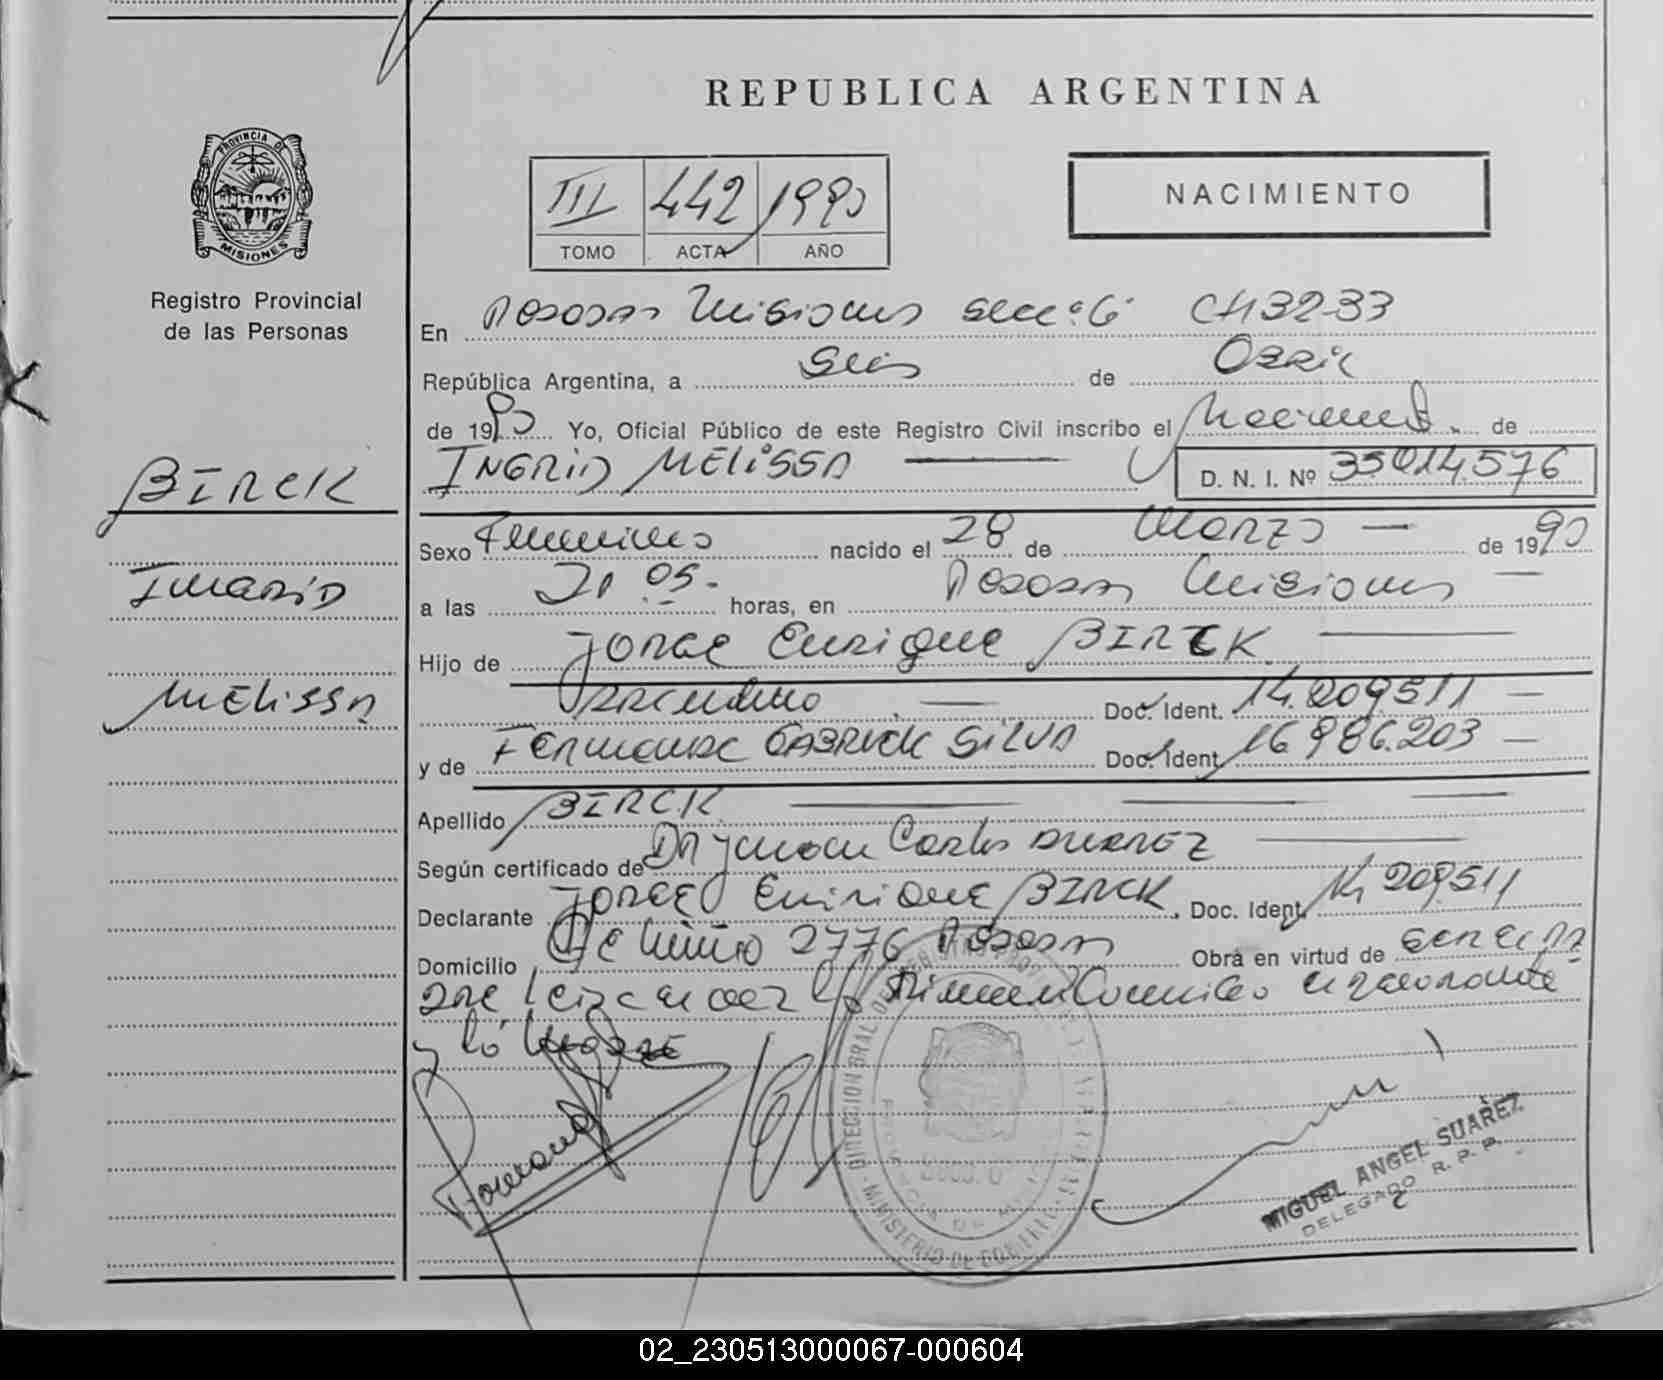 REPUBLICA ARGENTINA
PROVINCIA DE
MISIONES
Registro Provincial
de las Personas
III 442 1990
TOMO ACTA AÑO
NACIMIENTO
En Posadas Misiones Secc. 6 CH 32-33
República Argentina, a Seis de Abril
de 1990 Yo, Oficial Público de este Registro Civil inscribo el Nacimiento de
INGRID MELISSA D. N. I. Nº 35.014.576
BIRCK
INGRID
MELISSA
Sexo Femenino nacido el 28 de Marzo de 1990
a las 21 05 horas, en Posadas Misiones
Hijo de Jorge Enrique BIRCK
Argentino Doc. Ident. 14.209.511
y de GABRIELA SILVA Doc. Ident. 16.986.203
Apellido BIRCK
Según certificado de Dr Juan Carlos
Declarante Jorge Enrique BIRCK, Doc. Ident. 14.209.511
Domicilio 2776 Posadas Obra en virtud de
y la Madre
DIRECCION GRAL.
MINISTERIO DE
MIGUEL ANGEL SUAREZ
DELEGADO R. P. P.
02_230513000067-000604